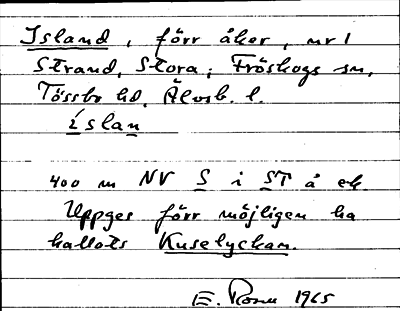 Island, förr åker, nr 1
Strand, Stora; Fröskogs sn,
Tössbo hd, Älvsb. l.
íslan
400 m NV S i ST å ek.
Uppges förr möjligen ha
kallats Kuselyckan.
E. 1965